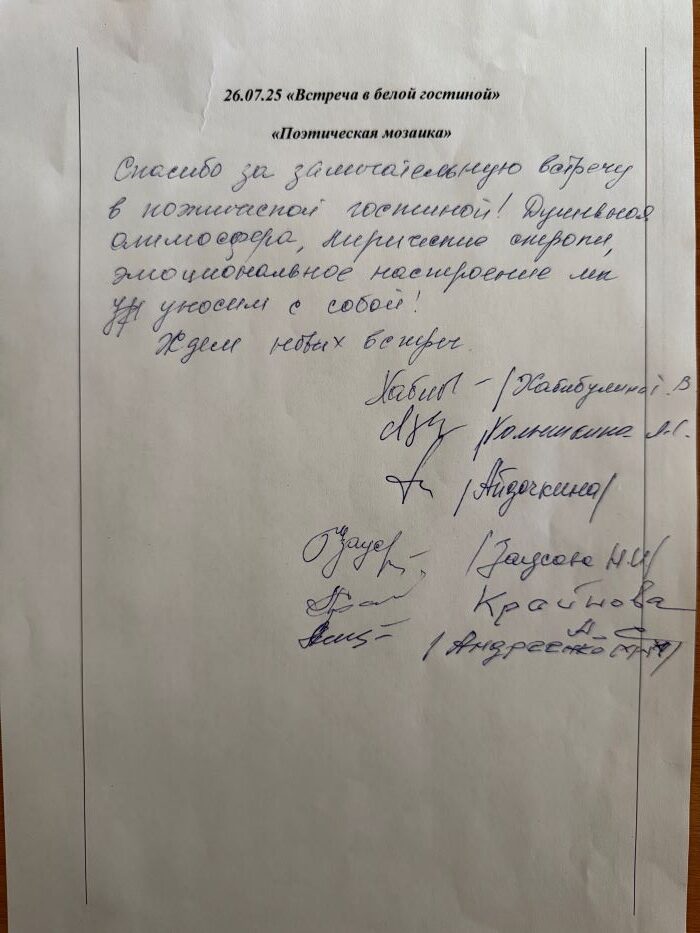 26.07.25 «Встреча в белой гостиной»
«Поэтическая мозаика»
Спасибо за замечательную встречу
в поэтической гостиной! Душевная
атмосфера, лирические строки,
эмоциональное настроение мы
уносим с собой!
Ждем новых встреч.
/Хабибулиной В
А.С.
/Айдочкина/
Н.И/
Крайнова
А. С
/Андреенко